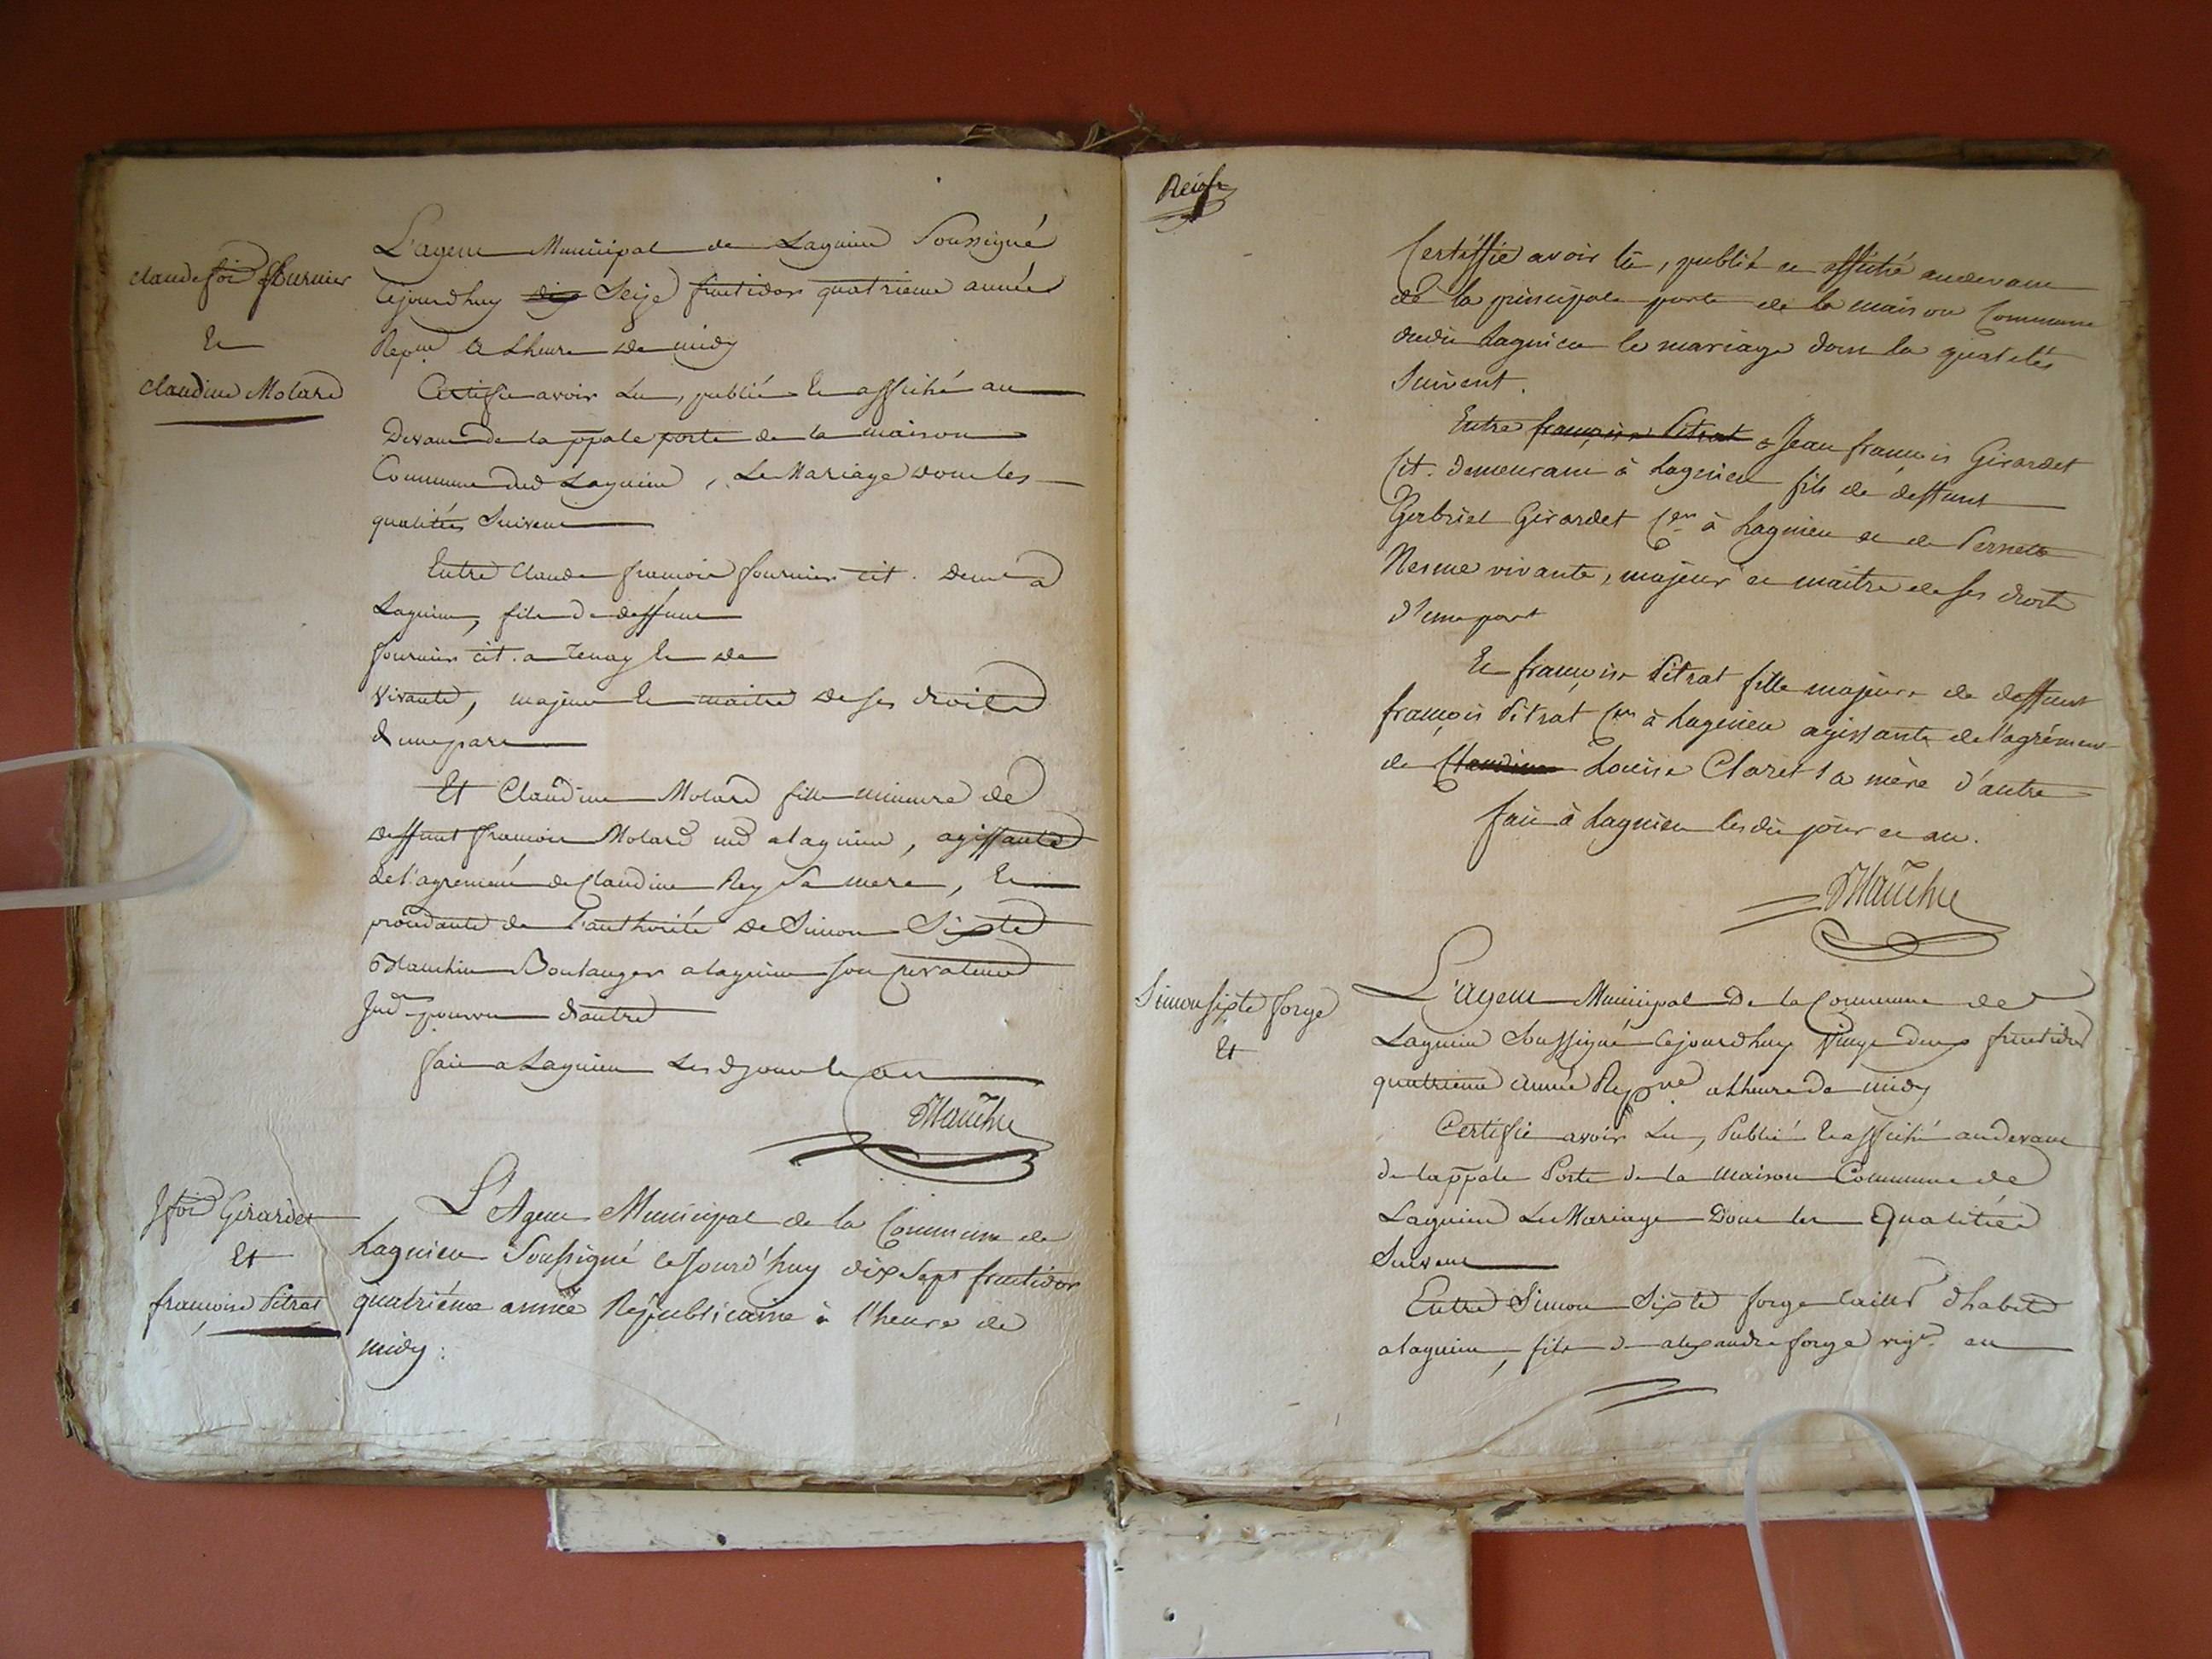 Claude foi fournier
Et
Claudine Molard
L'agent Municipal de Lagnieu Soussigné
Cejourdhuy dix Seize fructidor quatrieme année
Repne a Lheure de midy
Certifie avoir Lu, publié Et affiché au
Devant de la ppale porte de la maison
Commune dud Lagnieu, Le Mariage dont les
qualités Suivent
Entre Claude francois fournier cit. demt a
Lagnieu, fils de deffunt
fournier cit. a Tenay Et de
Vivante, majeur Et maitre de ses droits
d'une part
Et Claudine Molard fille mineure de
deffunt francois Molard md a lagnieu, agissante
de l'agrement de Claudine Rey Sa mere, Et
procedante de l'authorité de Simon Sixte
Boulanger a lagnieu son curateur
Jud pourvu d'autre
fait a Lagnieu Les d jour Et an
Jfoi Girardet
Et
françoise Pitrat
L'Agent Municipal de la Commune de
Lagnieu Soussigné cejourd'huy dix Sept fructidor
quatriéme année Republicaine à l'heure de
midy:
Certiffie avoir lû, publié et affiché audevant
de la principale porte de la maison Commune
dudit Lagnieu le mariage dont la qualités
Suivent.
Entre françoise Pitrat & Jean francois Girardet
Cit. demeurant à Lagnieu fils de deffunt
Gabriel Girardet Cen à Lagnieu et de Pernette
Nesme vivante, majeur et maitre de ses droits
d'une part
Et françoise Pitrat fille majeure de deffunt
françois Pitrat Cen à Lagnieu agissante de l'agrément
de Claudine Louise Claret sa mère d'autre
fait à Lagnieu lesdit jour et an.
Simon Sixte forge
Et
L'Agent Municipal De la Commune de
Lagnieu Soussigné Cejourdhuy Vingt deux fructidor
quatrieme année Repne a Lheure de midy
Certifie avoir Lu, Publié Et affiché audevant
de la ppale Porte de la maison Commune de
Lagnieu Le Mariage Dont les Qualités
Suivent
Entre Simon Sixte forge tailleur dhabits
a lagnieu, fils d alexandre forge vign au